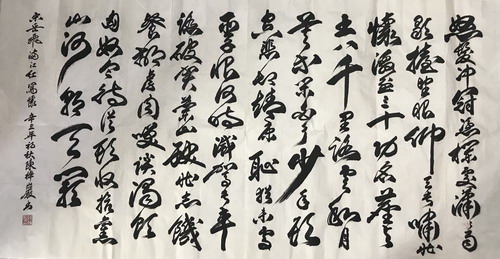 怒髮冲冠憑欄處瀟瀟雨
歇擡望眼仰天長嘯壯
懷激烈三十功名塵與
土八千里路雲和月
莫等閒白了少年頭
空悲切靖康恥猶未雪
臣子恨何時滅駕長車
踏破賀蘭山缺壯志饑
餐胡虜肉笑談渴飲
匈奴血待從頭收拾舊
山河朝天闕
宋岳飛滿江紅寫懷 辛丑年初秋陳